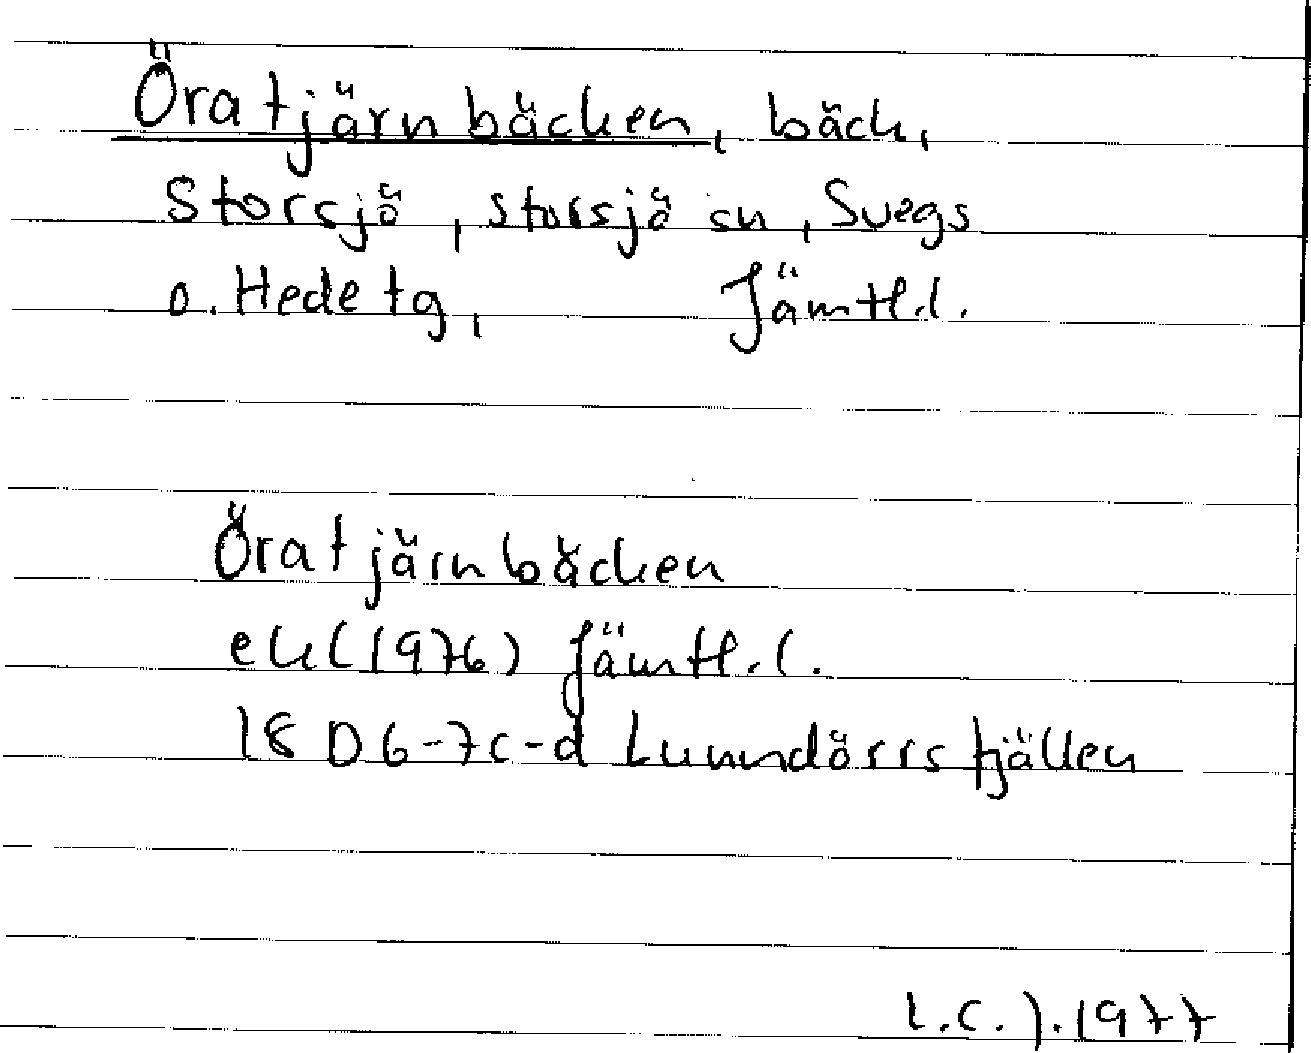 Öratjärnbäcken, bäck,
Storsjö, Storsjö sn, Svegs
o. Hede tg, Jämtl.l.
Öratjärnbäcken
ek (1976) Jämtl.l.
18 D 6-7c-d Lunndörrsfjällen
1977